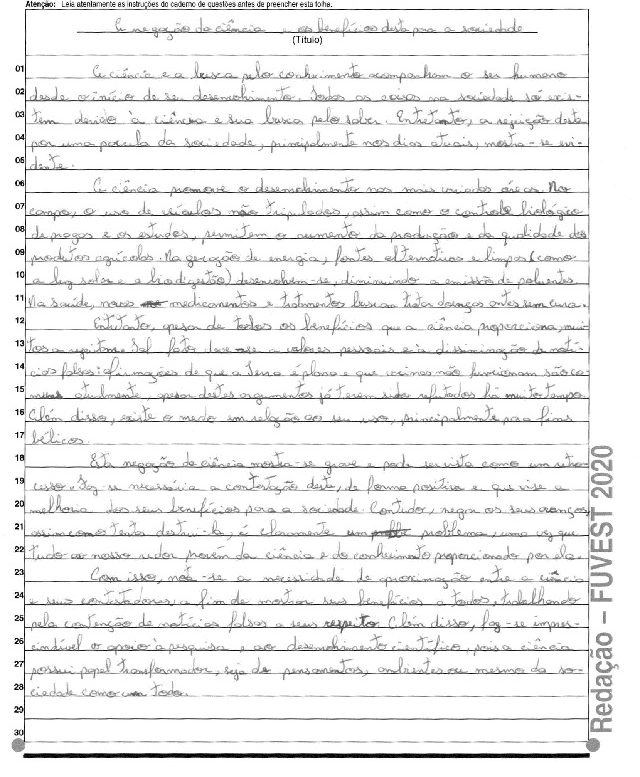 Atenção: Leia atentamente as instruções do caderno de questões antes de preencher esta folha.
A negação da ciência e os benefícios desta para a sociedade
(Título)
01 A ciência e a busca pelo conhecimento acompanham o ser humano
02 desde o início de seu desenvolvimento, todas as coisas na sociedade só exis-
03 tem devido à ciência e sua busca pelo saber. Entretanto, a rejeição desta
04 por uma parcela da sociedade, principalmente nos dias atuais, mostra-se evi-
05 dente.
06 A ciência promove o desenvolvimento nas mais variadas áreas. No
07 campo, o uso de veículos não tripulados, assim como o controle biológico
08 de pragas e os estudos, permitem o aumento da produção e da qualidade dos
09 produtos agrícolas. Na geração de energia, fontes alternativas e limpas (como
10 a luz solar e a biodigestão) desenvolvem-se, diminuindo a emissão de poluentes.
11 Na saúde, novos medicamentos e tratamentos buscam tratar doenças antes sem cura.
12 Entretanto, apesar de todos os benefícios que a ciência proporciona, mui-
13 tos a rejeitam. Tal fato deve-se a valores pessoais e à disseminação de notí-
14 cias falsas: afirmações de que a Terra é plana e que vacinas não funcionam são co-
15 muns atualmente, apesar destes argumentos já terem sido refutados há muito tempo.
16 Além disso, existe o medo em relação ao seu uso, principalmente para fins
17 bélicos.
18 Esta negação da ciência mostra-se grave e pode ser vista como um retro-
19 cesso. Faz-se necessária a contestação desta, de forma positiva e que vise a
20 melhoria dos seus benefícios para a sociedade. Contudo, negar os seus avanços,
21 assim como tentar destruí-la, é claramente um problema, uma vez que
22 tudo ao nosso redor provém da ciência e do conhecimento proporcionado por ela.
23 Com isso, nota-se a necessidade de aproximação entre a ciência
24 e seus contestadores, a fim de mostrar seus benefícios a todos, trabalhando
25 pela contenção de notícias falsas a seu respeito. Além disso, faz-se impres-
26 cindível o apoio à pesquisa e ao desenvolvimento científico, pois a ciência
27 possui papel transformador, seja de pensamentos, ambientes ou mesmo da so-
28 ciedade como um todo.
29
30
Redação – FUVEST 2020